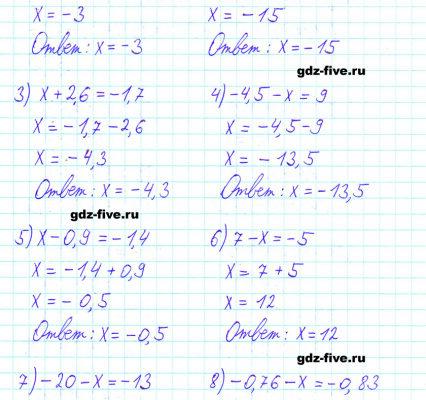 x = -3
Ответ: x = -3
x = -15
Ответ: x = -15
gdz-five.ru
3) x + 2,6 = -1,7
x = -1,7 - 2,6
x = -4,3
Ответ: x = -4,3
gdz-five.ru
4) -4,5 - x = 9
x = -4,5 - 9
x = -13,5
Ответ: x = -13,5
5) x - 0,9 = -1,4
x = -1,4 + 0,9
x = -0,5
Ответ: x = -0,5
6) 7 - x = -5
x = 7 + 5
x = 12
Ответ: x = 12
gdz-five.ru
7) -20 - x = -13
8) -0,76 - x = -0,83